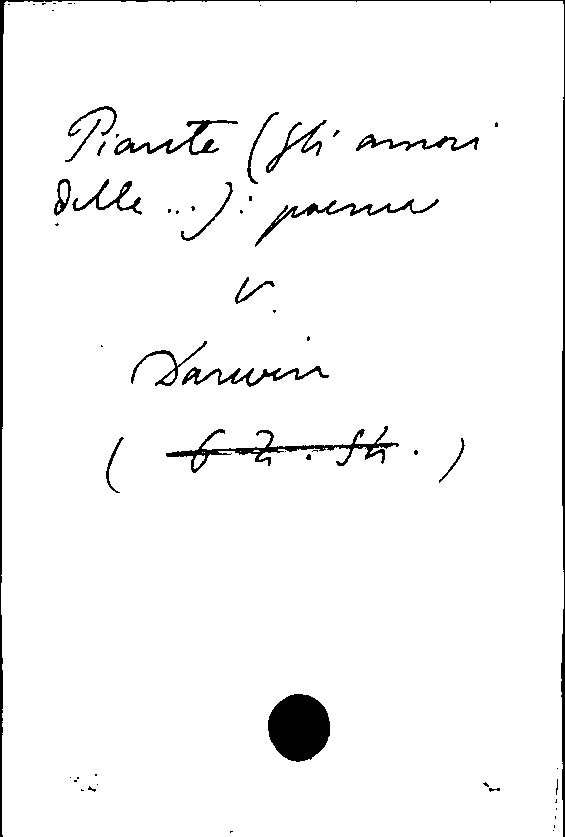 Piante (gli amori
delle ...): poema
v.
Darwin
( 6 2. 54. )